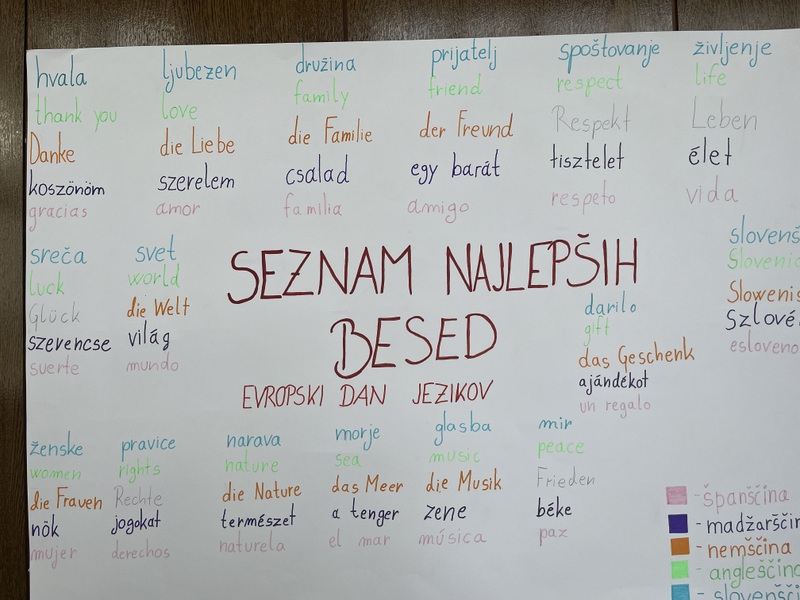 hvala
thank you
Danke
koszönöm
gracias
ljubezen
love
die Liebe
szerelem
amor
družina
family
die Familie
csalad
familia
prijatelj
friend
der Freund
egy barát
amigo
spoštovanje
respect
Respekt
tisztelet
respeto
življenje
life
Leben
élet
vida
sreča
luck
Glück
szerencse
suerte
svet
world
die Welt
világ
mundo
SEZNAM NAJLEPŠIH
BESED
EVROPSKI DAN JEZIKOV
darilo
gift
das Geschenk
ajándékot
un regalo
slovenš
Slovenic
Slowenis
Szlové
esloveno
ženske
women
die Frauen
nök
mujer
pravice
rights
Rechte
jogokat
derechos
narava
nature
die Nature
természet
natureta
morje
sea
das Meer
a tenger
el mar
glasba
music
die Musik
zene
música
mir
peace
Frieden
béke
paz
- španščina
- madžarščin
- nemščina
- angleščina
- slovenšči